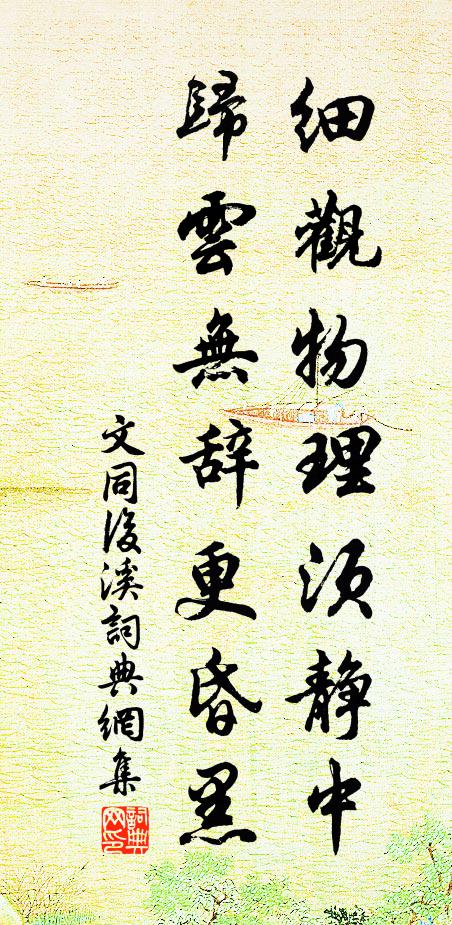 細觀物理須静中
歸雲無辞更昏黑
文同後溪詞典網集
詞典网印